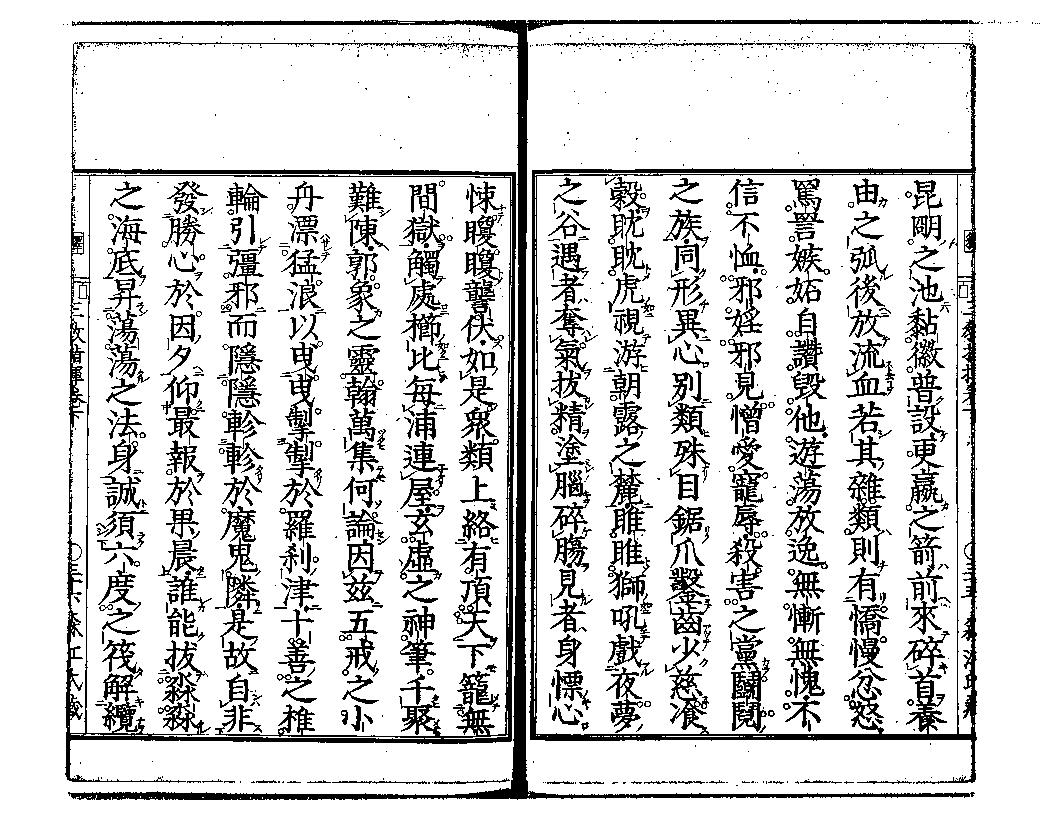 昆明之池黏黐普設更羸之箭前來碎首養
由之弧後放流血若其雜類則有憍慢忿怒
罵詈嫉妬自讚毀他遊蕩放逸無慚無愧不
信不恤邪婬邪見憎愛寵辱殺害之黨鬪鬩
之族同形異心別類殊目鋸爪鑿齒少慈飡
穀眈眈虎視游朝露之麓睢睢獅吼戲夜夢
之谷遇者奪氣拔精塗腦碎膓見者身慄心
悚䁵䁵讋伏如是眾類上絡有頂天下籠無
間獄觸處櫛比每浦連屋玄虛之神筆千聚
難陳郭象之靈翰萬集何論因玆五戒之小
舟漂猛浪以曳曳掣掣於羅刹津十善之椎
輪引彊邪而隱隱軫軫於魔鬼隣是故自非
發勝心於因夕仰最報於果晨誰能拔淼淼
之海底昇蕩蕩之法身誠須六度之筏解纜